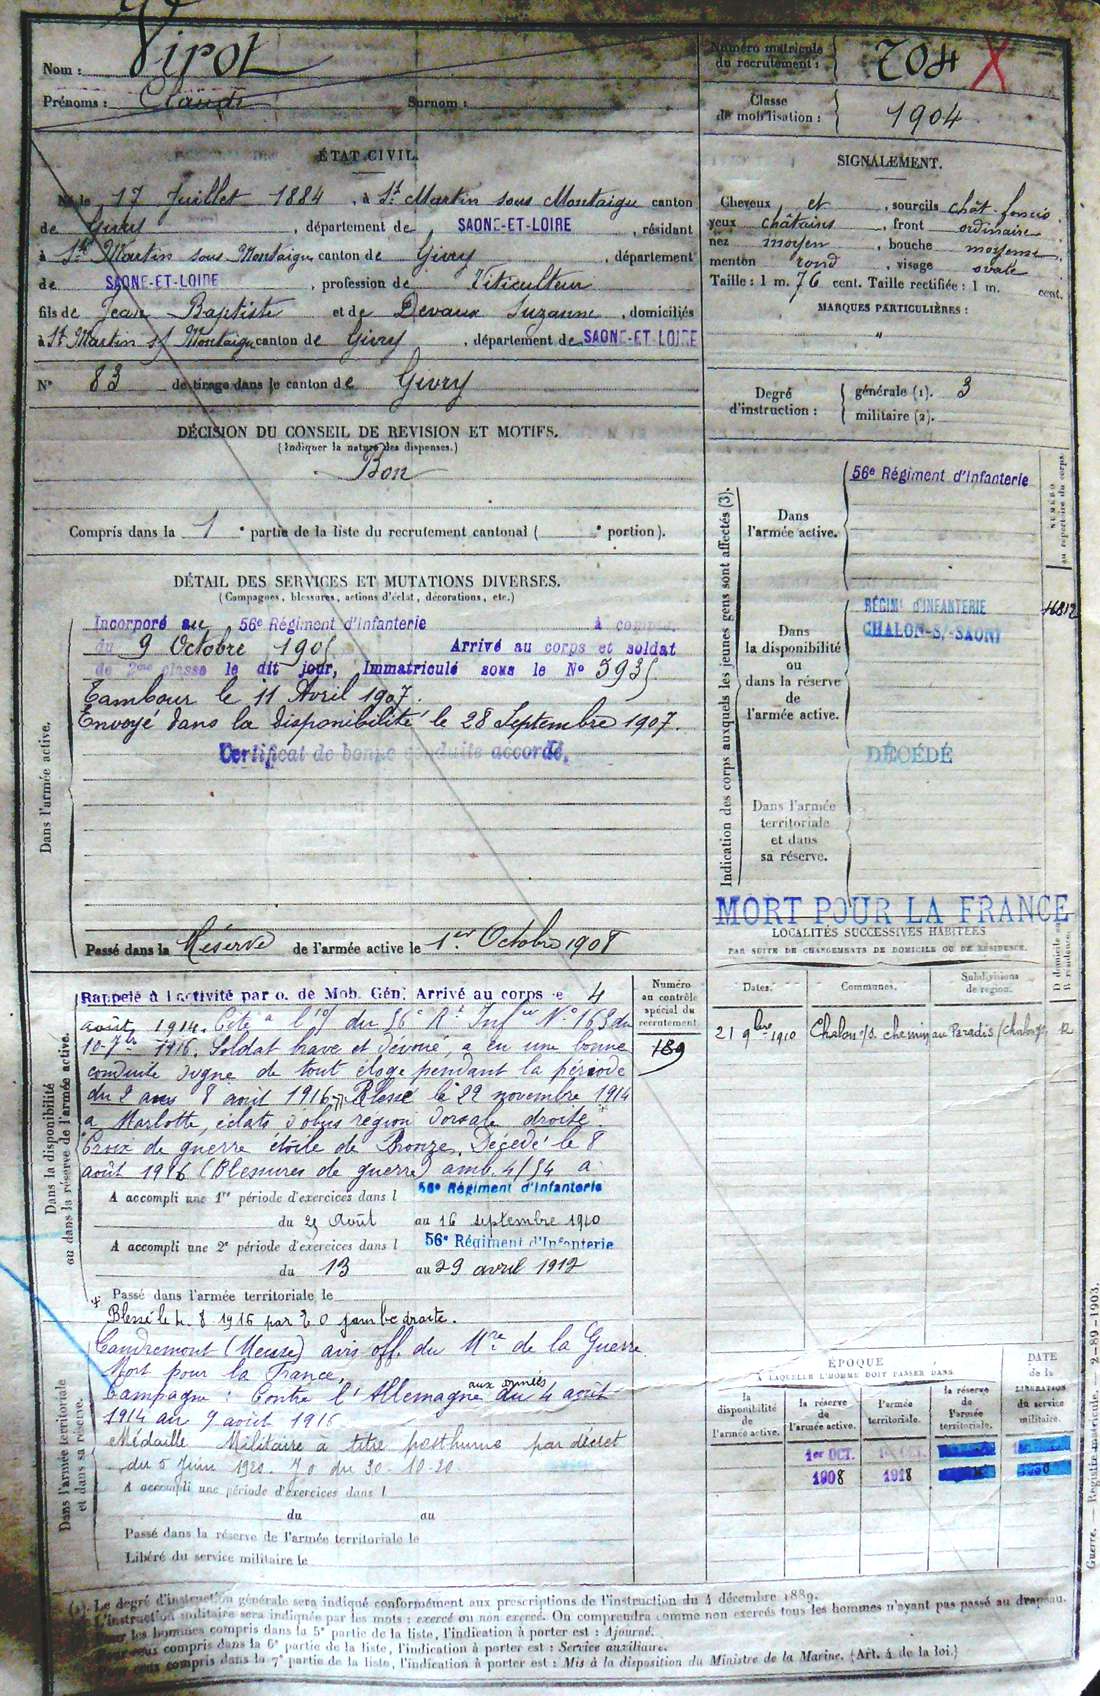 Nom : Virot
Prénoms : Claude Surnom :
Numéro matricule du recrutement : 704 X
Classe de mobilisation : 1904
ÉTAT CIVIL.
Né le 17 Juillet 1884, à St Martin sous Montaigu canton
de Givry, département de SAONE-ET-LOIRE, résidant
à St Martin sous Montaigu canton de Givry, département
de SAONE-ET-LOIRE, profession de Viticulteur
fils de Jean Baptiste et de Devaux Suzanne, domiciliés
à St Martin s/ Montaigu canton de Givry, département de SAONE-ET-LOIRE
N° 83 de tirage dans le canton de Givry
SIGNALEMENT.
Cheveux et, sourcils chât. foncés
yeux châtains, front ordinaire
nez moyen, bouche moyenne
menton rond, visage ovale
Taille : 1 m. 76 cent. Taille rectifiée : 1 m. cent.
MARQUES PARTICULIÈRES :
"
Degré d'instruction : générale (1). 3
militaire (2).
DÉCISION DU CONSEIL DE REVISION ET MOTIFS.
(Indiquer la nature des dispenses.)
Bon
Compris dans la 1 e partie de la liste du recrutement cantonal ( e portion).
DÉTAIL DES SERVICES ET MUTATIONS DIVERSES.
(Campagnes, blessures, actions d'éclat, décorations, etc.)
Dans l'armée active.
Incorporé au 56e Régiment d'Infanterie à compter
du 9 Octobre 1905 Arrivé au corps et soldat
de 2me classe le dit jour, Immatriculé sous le N° 5935
Tambour le 11 Avril 1907.
Envoyé dans la disponibilité le 28 Septembre 1907.
Certificat de bonne conduite accordé.
Passé dans la Réserve de l'armée active le 1er Octobre 1908
Indication des corps auxquels les jeunes gens sont affectés (3).
NUMÉRO au répertoire du corps.
Dans l'armée active.
56e Régiment d'Infanterie
Dans la disponibilité ou dans la réserve de l'armée active.
RÉGIMt D'INFANTERIE
CHALON-S/-SAONE
DÉCÉDÉ
Dans l'armée territoriale et dans sa réserve.
MORT POUR LA FRANCE
LOCALITÉS SUCCESSIVES HABITÉES
PAR SUITE DE CHANGEMENTS DE DOMICILE OU DE RÉSIDENCE.
Dates. Communes. Subdivisions de région. D domicile ou R résidence.
21 9bre 1910 Chalon s/s. chemin au Paradis
Dans la disponibilité ou dans la réserve de l'armée active.
Numéro au contrôle spécial du recrutement.
189
Rappelé à l'activité par o. de Mob. Gén. Arrivé au corps le 4
août 1914. Cité à l'o/ du 56e Rt Infie N° 163 du
10-7bre 1916. Soldat brave et dévoué, a eu une bonne
conduite digne de tout éloge pendant la période
du 2 au 8 août 1916. Blessé le 22 novembre 1914
a Marlotte, éclats d'obus région dorsale droite.
Croix de guerre étoile de Bronze. Décédé le 8
août 1916 (Blessures de guerre) amb. 4/54 a
A accompli une 1re période d'exercices dans l 56e Régiment d'Infanterie
du 25 Août au 16 septembre 1910
A accompli une 2e période d'exercices dans l 56e Régiment d'Infanterie
du 13 au 29 avril 1912
Passé dans l'armée territoriale le
Blessé le 4. 8 1916 par E O jambe droite.
Dans l'armée territoriale et dans sa réserve.
Landremont (Meuse) avis off. du Mre de la Guerre
Mort pour la France.
Campagne : Contre l'Allemagne aux armées du 4 août
1914 au 7 août 1916
Médaille Militaire à titre posthume par décret
du 5 Juin 1920. J O du 30-10-20
A accompli une période d'exercices dans l
du au
Passé dans la réserve de l'armée territoriale le
Libéré du service militaire le
ÉPOQUE
A LAQUELLE L'HOMME DOIT PASSER DANS
DATE de la LIBÉRATION du service militaire.
la disponibilité de l'armée active. la réserve de l'armée active. l'armée territoriale. la réserve de l'armée territoriale.
1er OCT. 1er OCT.
1908 1918
Guerre. — Registre matricule. — 2-89-1903.
(1). Le degré d'instruction générale sera indiqué conformément aux prescriptions de l'instruction du 4 décembre 1889.
L'instruction militaire sera indiquée par les mots : exercé ou non exercé. On comprendra comme non exercés tous les hommes n'ayant pas passé au drapeau.
Pour les hommes compris dans la 5e partie de la liste, l'indication à porter est : Ajourné.
Pour ceux compris dans la 6e partie de la liste, l'indication à porter est : Service auxiliaire.
Pour ceux compris dans la 7e partie de la liste, l'indication à porter est : Mis à la disposition du Ministre de la Marine. (Art. 4 de la loi.)